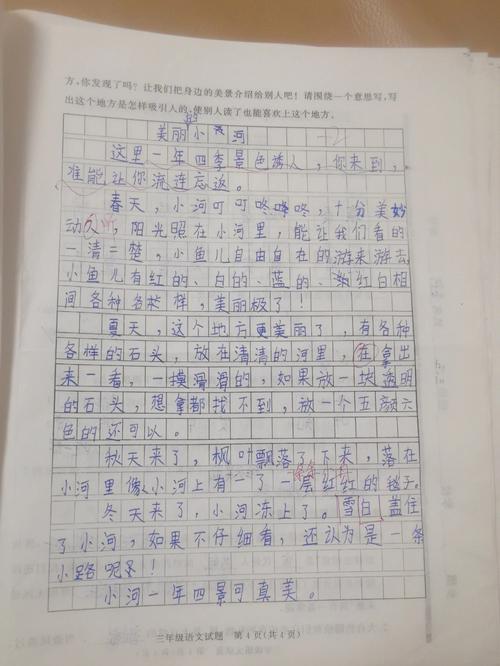 方,你发现了吗?让我们把身边的美景介绍给别人吧!请围绕一个意思写,写
出这个地方是怎样吸引人的,使别人读了也能喜欢上这个地方。
美丽小河
这里一年四季景色诱人,你来到,
准能让你流连忘返。
春天,小河叮叮咚咚咚,十分美妙
动人,阳光照在小河里,能让我们看的
一清二楚,小鱼儿自由自在的游来游去,
小鱼儿有红的、白的、蓝的、红白相
间各种各样,美丽极了!
夏天,这个地方更美丽了,有各种
各样的石头,放在清清的河里,在拿出
来一看,一摸滑滑的,如果放一块透明
的石头,想拿都找不到,放一个五颜六
色的还可以。
秋天来了,枫叶飘落了下来,落在
小河里像小河上有一了一层红红的毯子。
冬天来了,小河冻上了。雪白盖住
了小河,如果不仔细看,还认为是一条
小路呢!
小河一年四景可真美。
三年级语文试题 第4页(共4页)